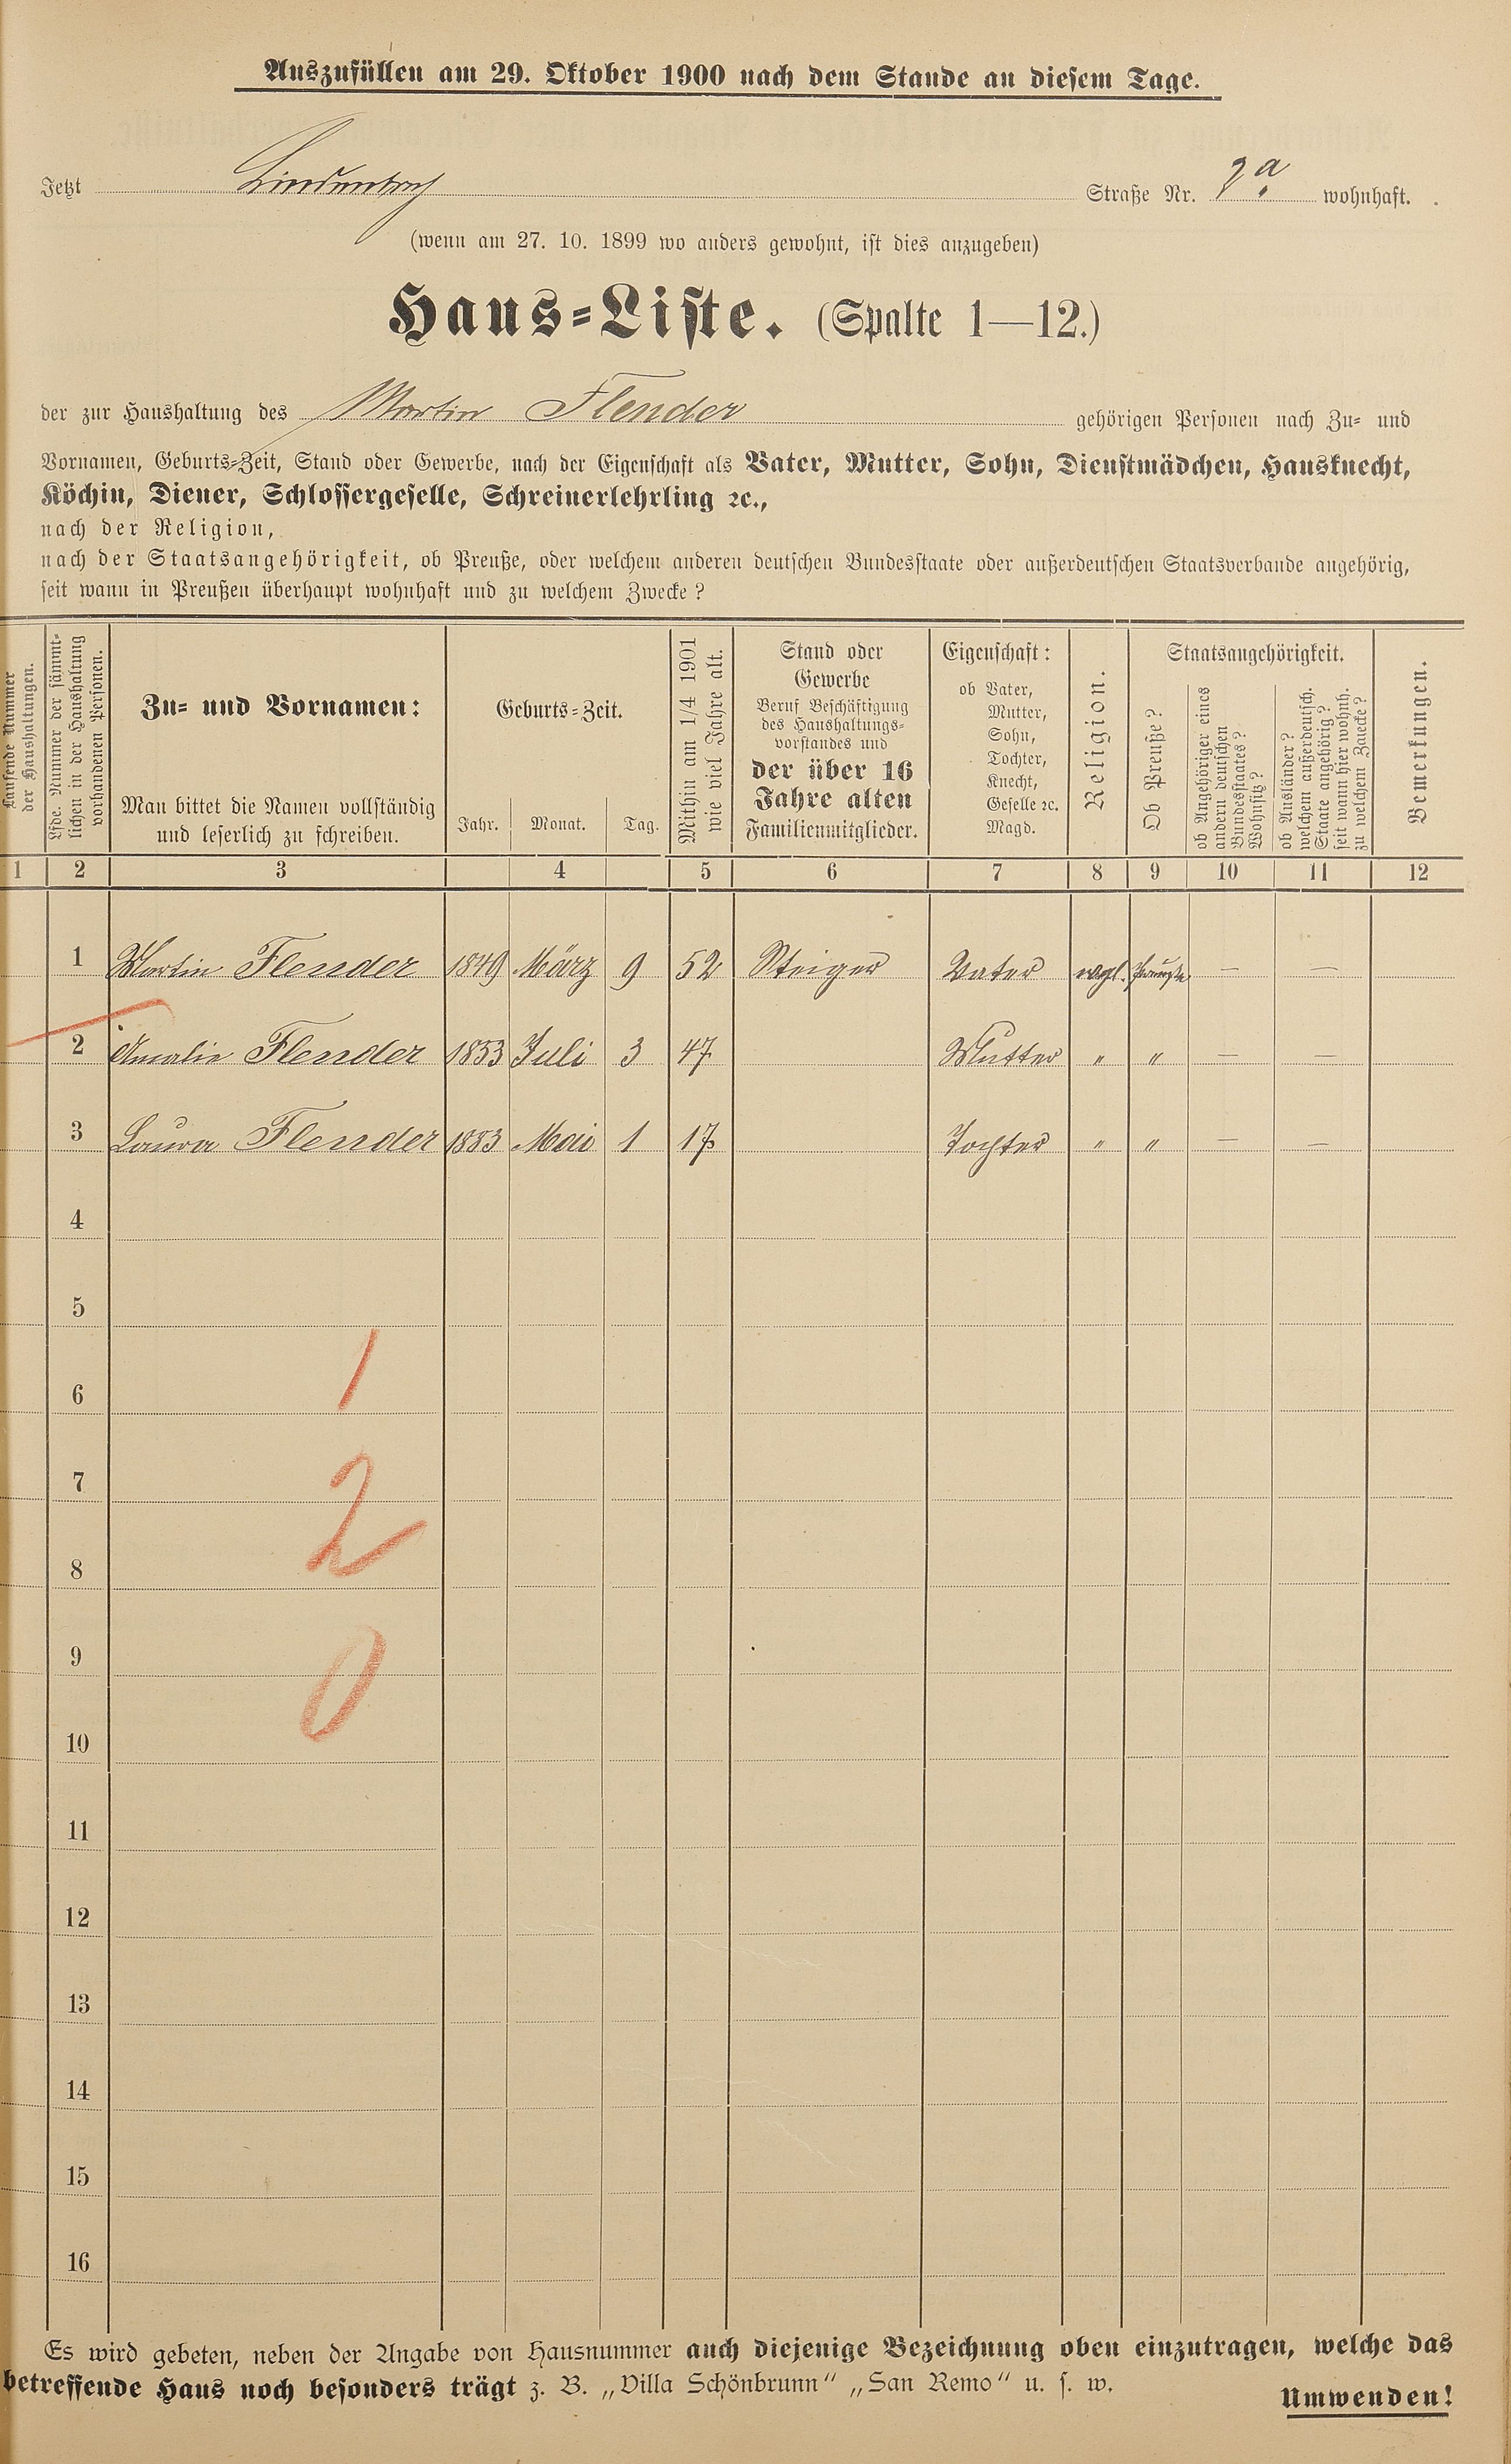 Auszufüllen am 29. Oktober 1900 nach dem Stande an diesem Tage.
Jetzt Lindenbach Straße Nr. 2a. wohnhaft.
(wenn am 27. 10. 1899 wo anders gewohnt, ist dies anzugeben)
Haus-Liste. (Spalte 1—12.)
der zur Haushaltung des Martin Flender gehörigen Personen nach Zu- und
Vornamen, Geburts-Zeit, Stand oder Gewerbe, nach der Eigenschaft als Vater, Mutter, Sohn, Dienstmädchen, Hausknecht,
Köchin, Diener, Schlossergeselle, Schreinerlehrling ꝛc.,
nach der Religion,
nach der Staatsangehörigkeit, ob Preuße, oder welchem anderen deutschen Bundesstaate oder außerdeutschen Staatsverbande angehörig,
seit wann in Preußen überhaupt wohnhaft und zu welchem Zwecke?
Laufende Nummer
der Haushaltungen.
Lfde. Nummer der sämmt-
lichen in der Haushaltung
vorhandenen Personen.
Zu- und Vornamen:
Man bittet die Namen vollständig
und leserlich zu schreiben.
Geburts-Zeit.
Jahr. Monat. Tag.
Mithin am 1/4 1901
wie viel Jahre alt.
Stand oder
Gewerbe
Beruf Beschäftigung
des Haushaltungs-
vorstandes und
der über 16
Jahre alten
Familienmitglieder.
Eigenschaft:
ob Vater,
Mutter,
Sohn,
Tochter,
Knecht,
Geselle ꝛc.
Magd.
Religion.
Staatsangehörigkeit.
Ob Preuße?
ob Angehöriger eines
andern deutschen
Bundesstaates?
Wohnsitz?
ob Ausländer?
welchem außerdeutsch.
Staate angehörig?
seit wann hier wohnh.
zu welchem Zwecke?
Bemerkungen.
1 2 3 4 5 6 7 8 9 10 11 12
1 Martin Flender 1849 März 9 52 Steiger Vater evgl. Preuße — —
2 Amalie Flender 1853 Juli 3 47 Mutter " " — —
3 Laura Flender 1883 Mai 1 17 Tochter " " — —
4
5
1
6
7
2
8
9
0
10
11
12
13
14
15
16
Es wird gebeten, neben der Angabe von Hausnummer auch diejenige Bezeichnung oben einzutragen, welche das
betreffende Haus noch besonders trägt z. B. „Villa Schönbrunn“ „San Remo“ u. s. w.
Umwenden!